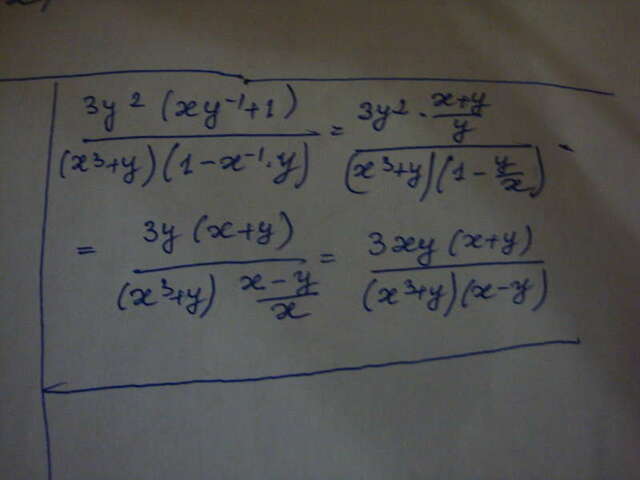 3y² (xy⁻¹+1) / (x³+y)(1-x⁻¹·y) = 3y² · (x+y)/y / (x³+y)(1-y/x) -
= 3y (x+y) / (x³+y) (x-y)/x = 3xy (x+y) / (x³+y)(x-y)